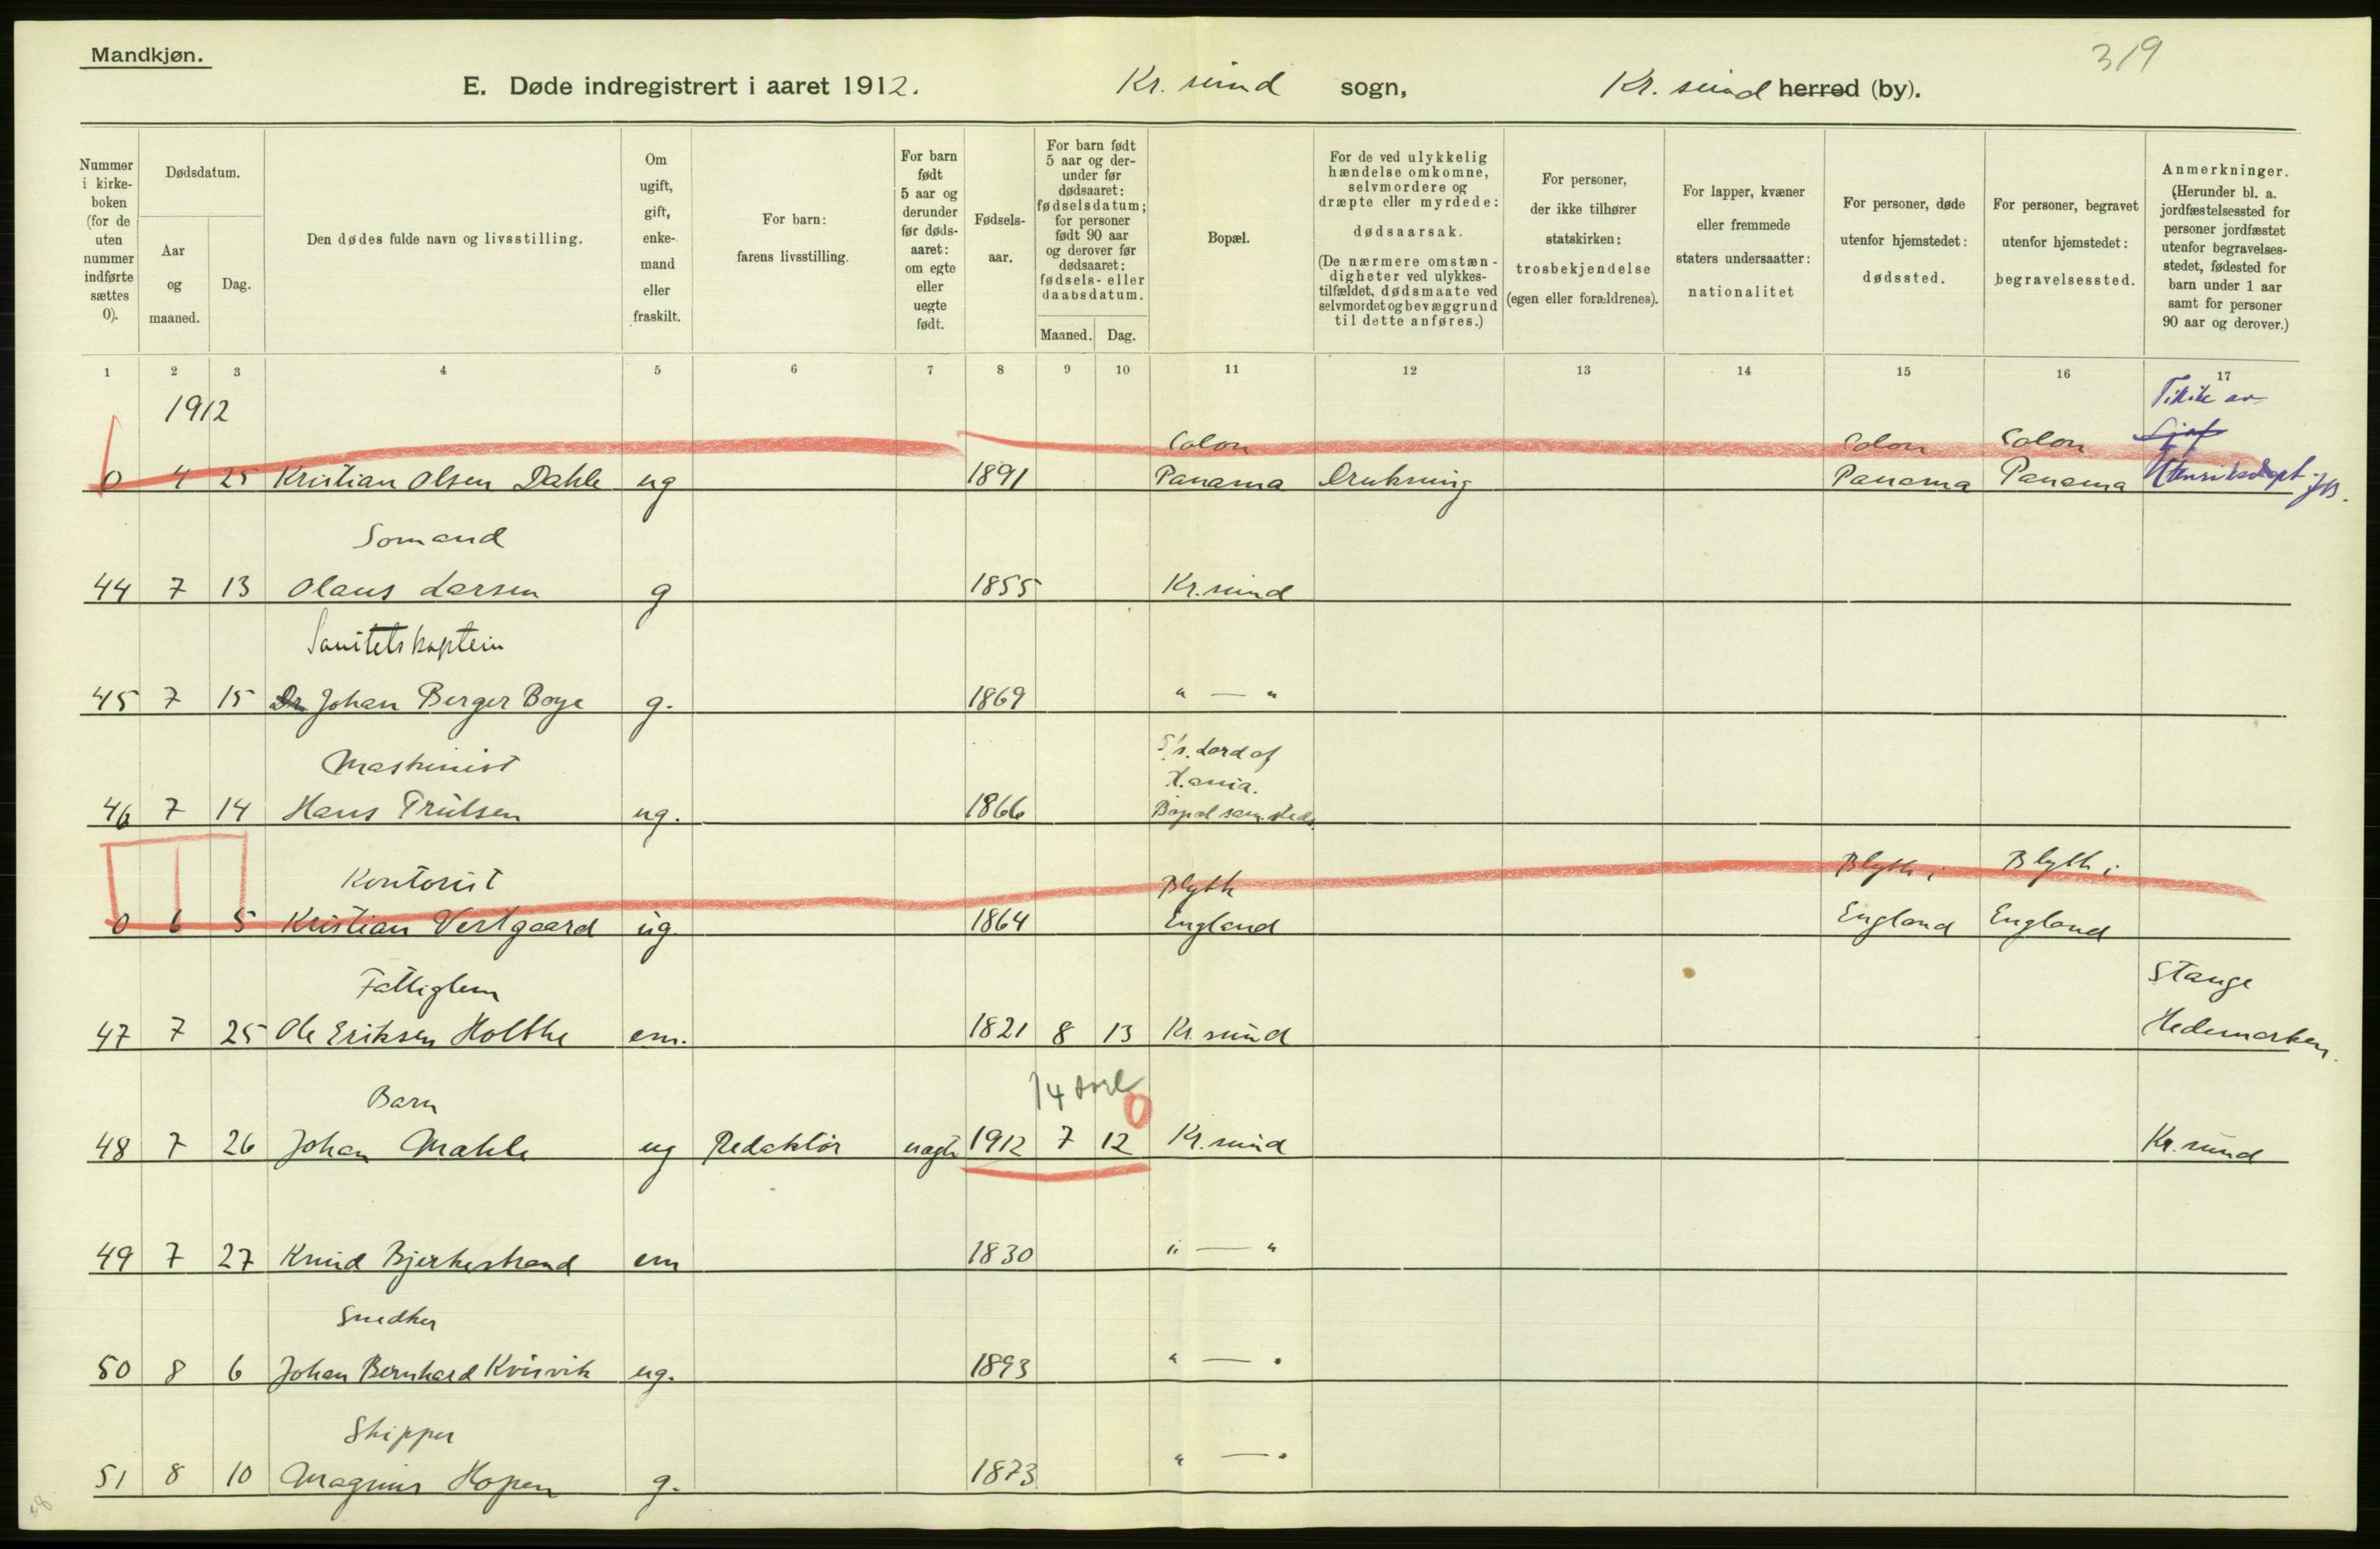 Mandkjøn.
319
E. Døde indregistrert i aaret 1912. Kr. sund sogn, Kr. sund herred (by).
Nummer i kirkeboken (for de uten nummer indførte sættes 0).
Dødsdatum.
Aar og maaned.
Dag.
Den dødes fulde navn og livsstilling.
Om ugift, gift, enkemand eller fraskilt.
For barn: farens livsstilling.
For barn født 5 aar og derunder før dødsaaret: om egte eller uegte født.
Fødselsaar.
For barn født 5 aar og derunder før dødsaaret: fødselsdatum; for personer født 90 aar og derover før dødsaaret: fødsels- eller daabsdatum.
Maaned. Dag.
Bopæl.
For de ved ulykkelig hændelse omkomne, selvmordere og dræpte eller myrdede: dødsaarsak.
(De nærmere omstændigheter ved ulykkestilfældet, dødsmaate ved selvmordet og bevæggrund til dette anføres.)
For personer, der ikke tilhører statskirken: trosbekjendelse (egen eller forældrenes).
For lapper, kvæner eller fremmede staters undersaatter: nationalitet
For personer, døde utenfor hjemstedet: dødssted.
For personer, begravet utenfor hjemstedet: begravelsessted.
Anmerkninger.
(Herunder bl. a. jordfæstelsessted for personer jordfæstet utenfor begravelsesstedet, fødested for barn under 1 aar samt for personer 90 aar og derover.)
1 2 3 4 5 6 7 8 9 10 11 12 13 14 15 16 17
1912
Colon Colon Colon
0 4 25 Kristian Olsen Dahle ug 1891 Panama Drukning Panama Panama
Sømand
44 7 13 Olaus Larsen g 1855 Kr. sund
Sanitetskaptein
45 7 15 Dr Johan Berger Boye g. 1869 " — "
Maskinist S/s. Lord of
46 7 14 Hans Trulsen ug. 1866 Bopæl sam. steds.
Kontorist Blyth Blyth i Blyth i
0 6 5 Kristian Vestgaard ug 1864 England England England
Fattiglem Stange
47 7 25 Ole Eriksen Holthe em. 1821 8 13 Kr. sund Hedemarken.
Barn 14 0
48 7 26 Johan Mahle ug Redaktør uægte 1912 7 12 Kr. sund Kr. sund
49 7 27 Knud Bjerkestrand em 1830 " — "
Snedker
50 8 6 Johan Bernhard Kvisvik ug. 1893 " — "
Skipper
51 8 10 Magnus Hopen g. 1873 " — "